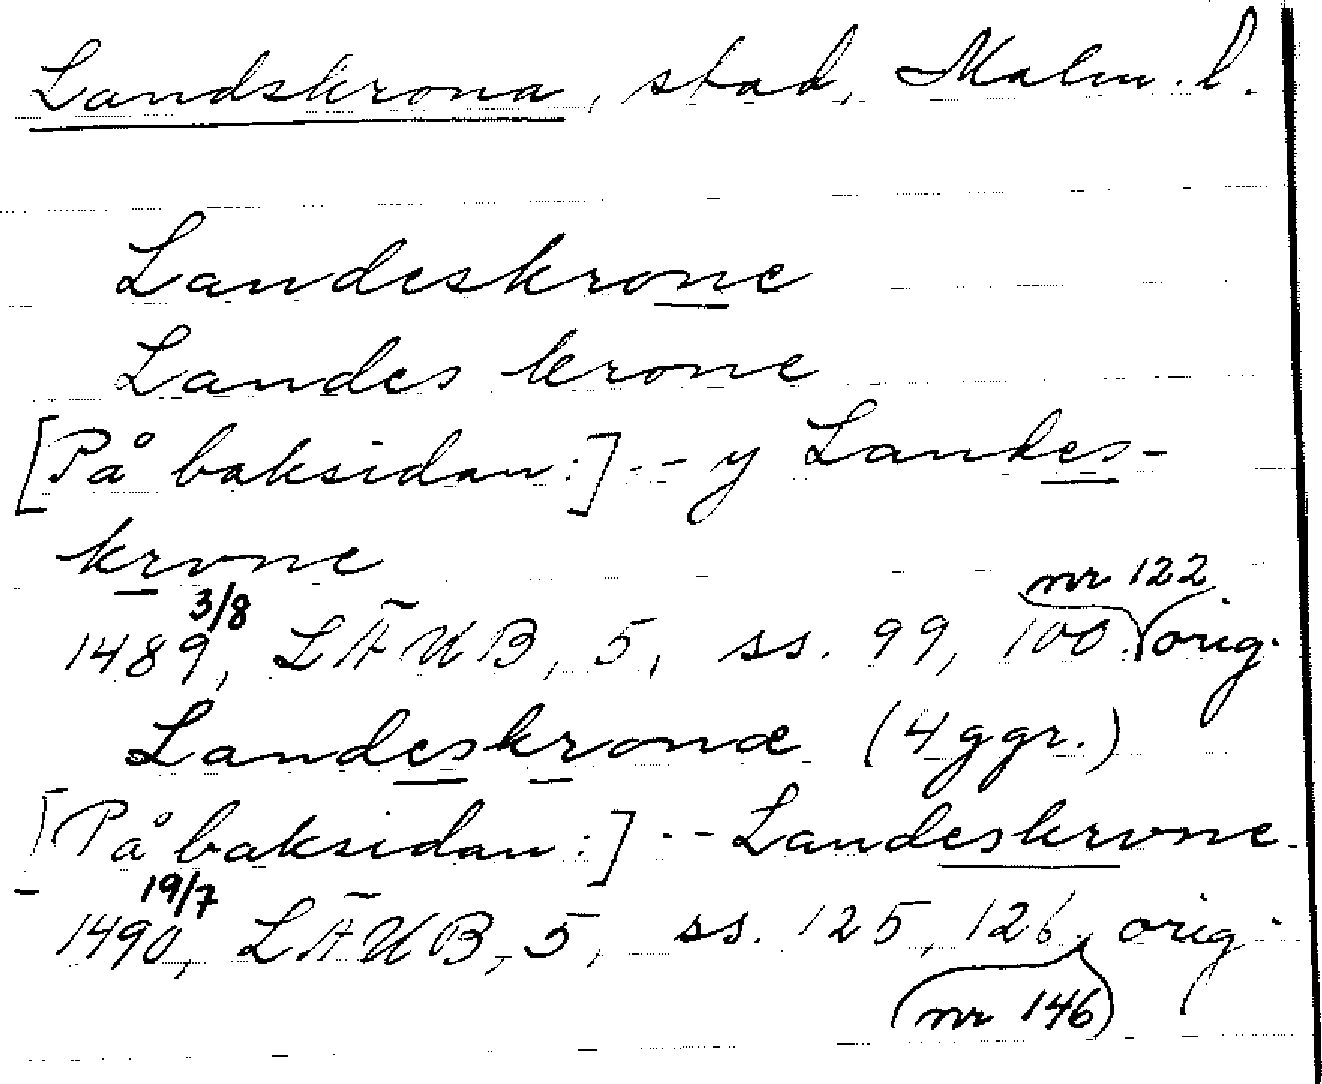 Landskrona, stad, Malm. l.
Landeskrone
Landes krone
[På baksidan:] -- y Landes-
krone
3/8 nr 122
1489, LÄUB, 5, ss. 99, 100. orig.
Landeskronæ (4 ggr.)
[På baksidan:] -- Landeskrone.
19/7
1490, LÄUB, 5, ss. 125, 126, orig.
(nr 146)